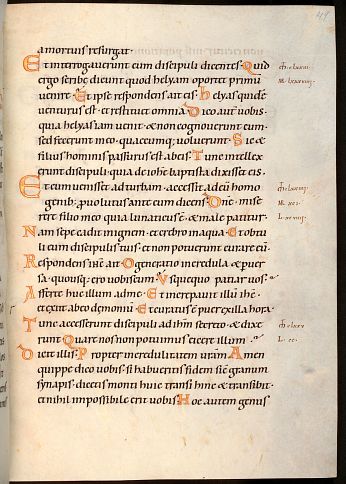 a mortuis resurgat·
Et interrogaverunt eum discipuli dicentes· Quid
ergo scribe dicunt quod helyam oportet primū
venire· Et ipse respondens ait eis· helyas quidē
venturus est· et restituet omnia· Dico autē vobis·
quia helyas iam venit· & non cognoverunt eum·
sed fecerunt in eo· quaecumq; voluerunt· Sic &
filius hominis passurus est ab eis· Tunc intellex
erunt discipuli· quia de ioh̄e baptista dixisset eis·
Et cum venisset ad turbam· accessit ad eū homo
genib; provolutus ante eum dicens· Dn̄e· mise
rere filio meo quia lunaticus ē· & male patitur·
Nam sepe cadit in ignem· et crebro in aqua· Et obtu
li eum discipulis tuis· et non potuerunt curare eū·
Respondens ih̄c ait· O generatio incredula & pver
sa· quousq; ero vobiscum· Usequequo patiar vos·
Afferte huc illum ad me· Et increpavit illū ih̄c·
et exiit ab eo demoniū· Et curatus ē puer ex illa hora·
Tunc accesserunt discipuli ad ih̄m secreto· & dixe
runt· Quare nos non potuimus eicere illum·
Dicit illis· Propter incredulitatem vr̄am· Amen
quippe dico vobis· si habueritis fidem sic̄ granum
synapis· dicetis monti huic transi hinc & transibit·
et nihil impossibile erit vobis· Hoc autem genus